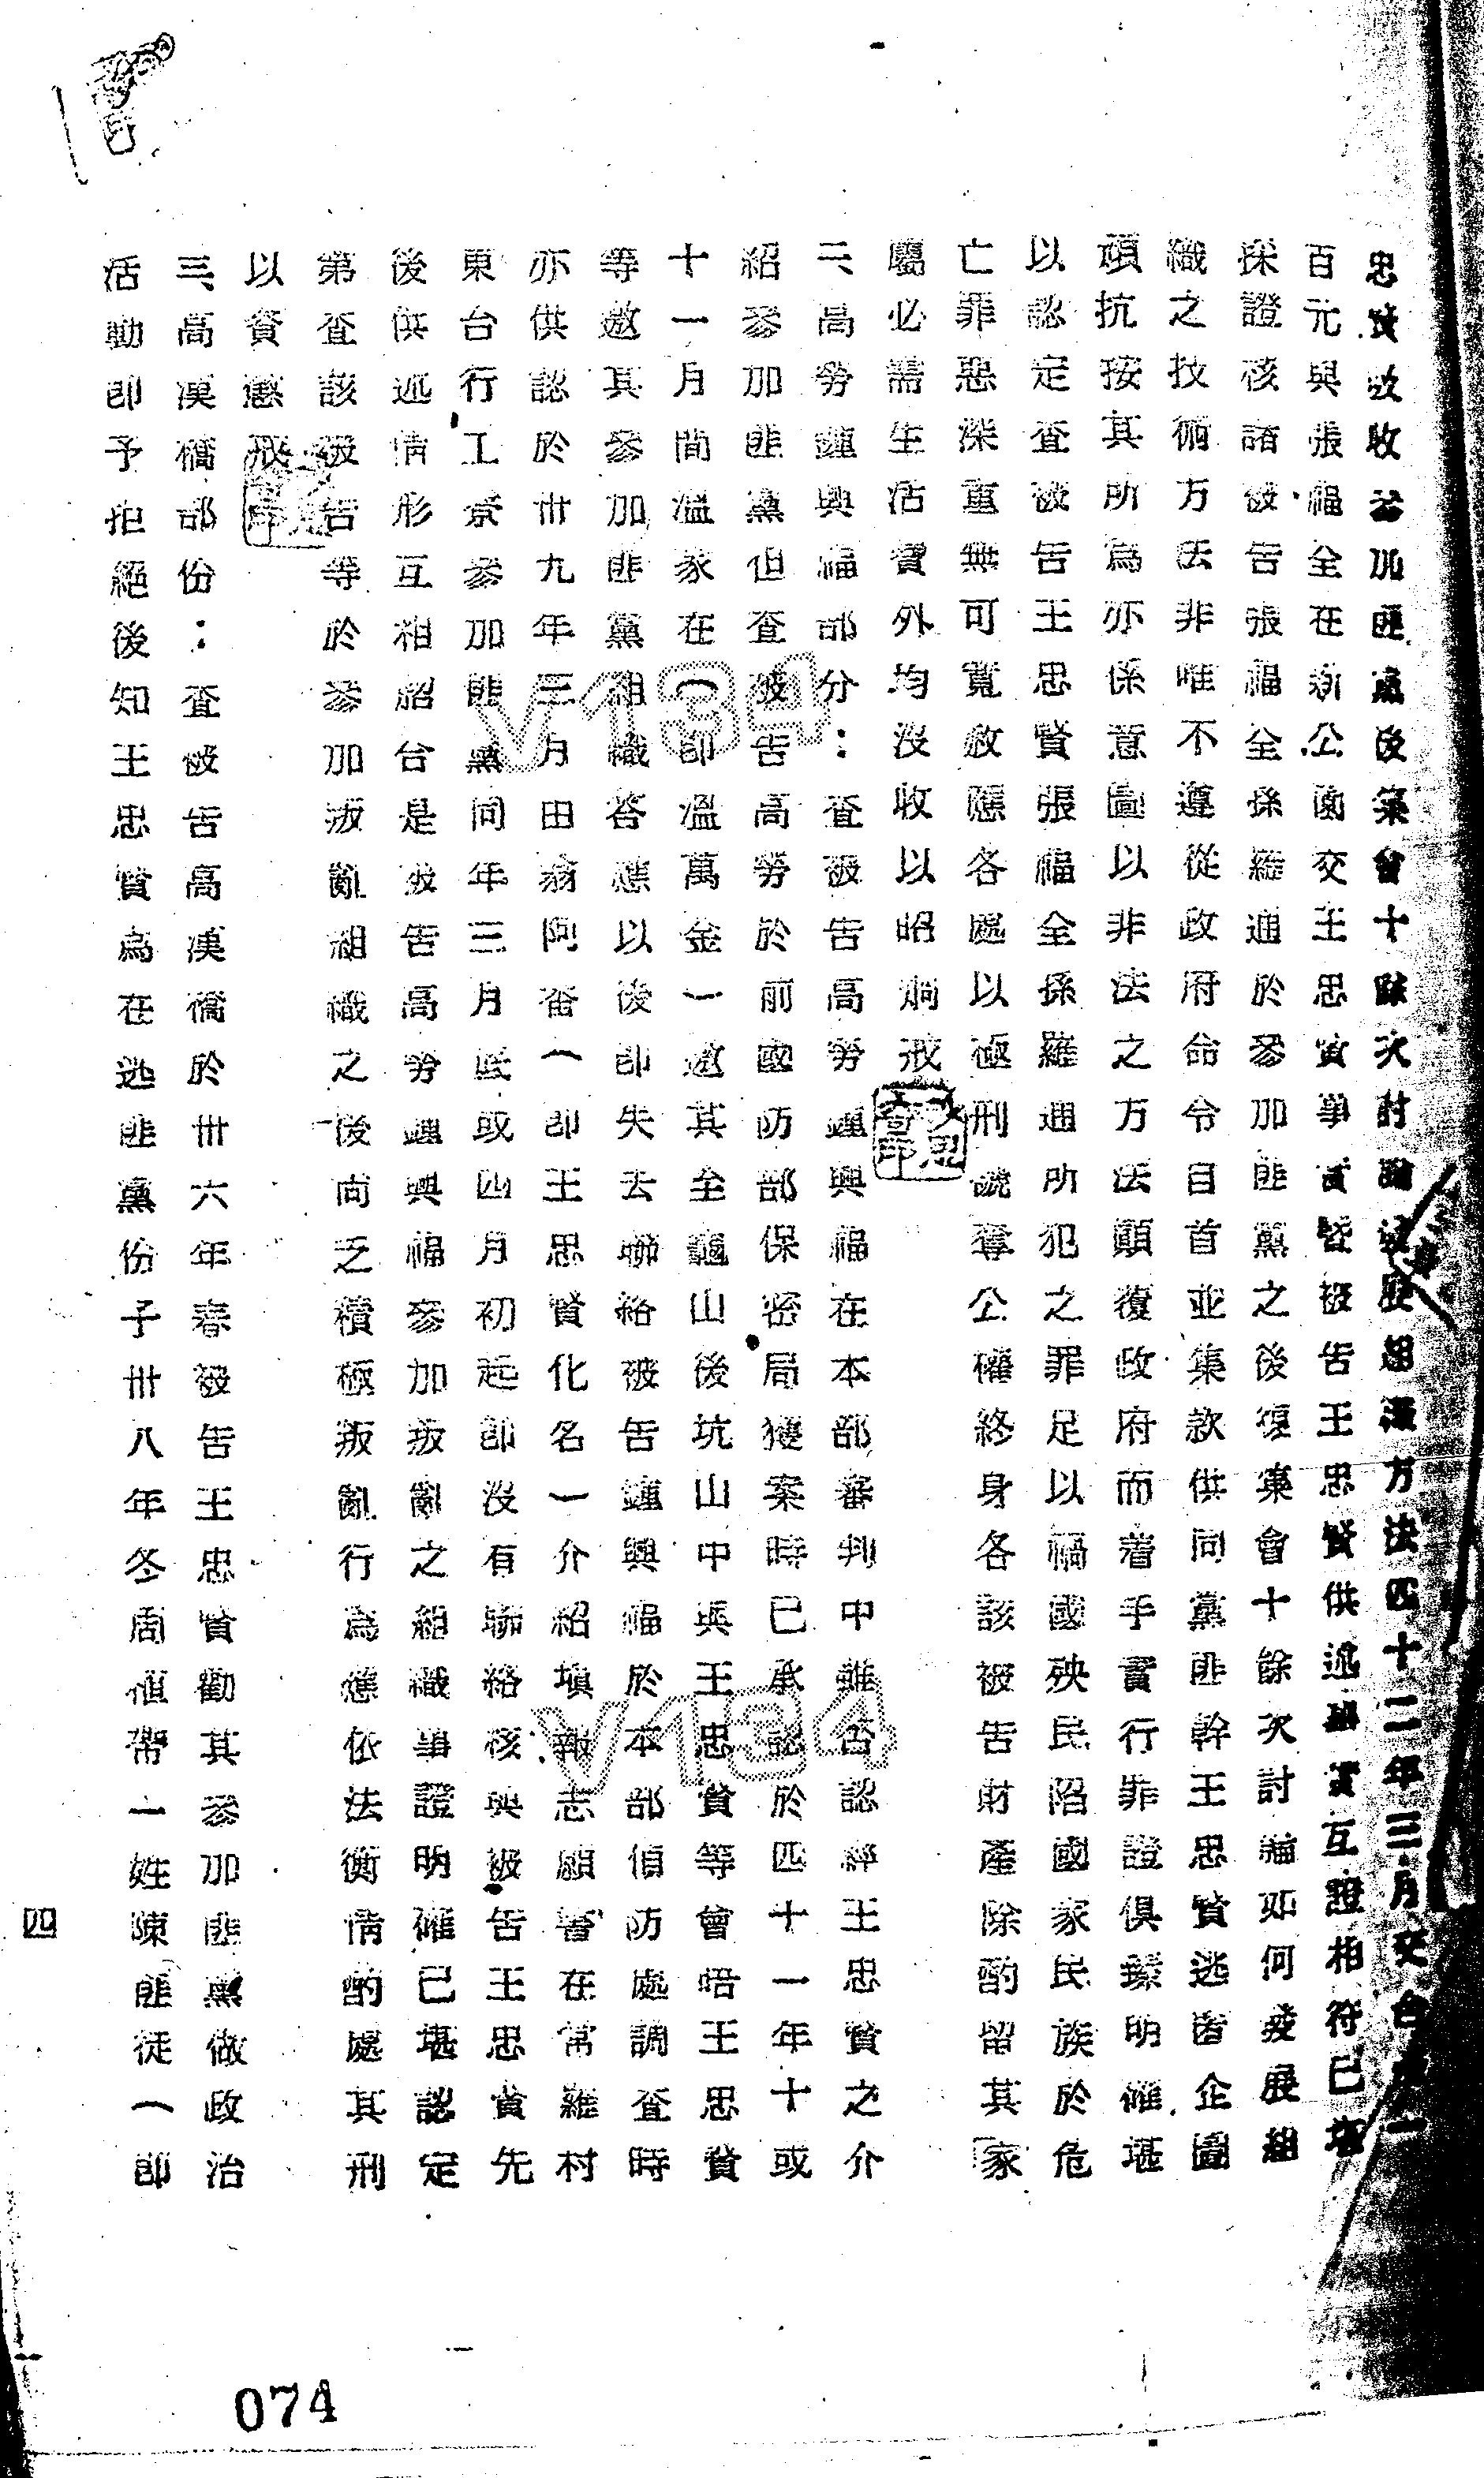 忠賢收收並加匪黨後集會十餘次討論發展組織方法四十二年三月交台幣一
百元與張福全在新公園交王思賓事實暨被告王忠賢供述事實互證相符已堪
採證核諸被告張福全孫羅通於參加匪黨之後復集會十餘次討論如何發展組
織之技術方法非唯不遵從政府命令自首並集款供同黨匪幹王思賢逃避企圖
頑抗按其所為亦係意圖以非法之方法顛覆政府而著手實行罪證俱臻明確堪
以認定查被告王思賢張福全孫羅通所犯之罪足以禍國殃民陷國家民族於危
亡罪惡深重無可寬赦應各處以極刑褫奪公權終身各該被告財產除酌留其家
屬必需生活費外均沒收以昭烱戒
二、高勞鍾興福部分：查被告高勞鍾興福在本部審判中雖否認經王忠賢之介
紹參加匪黨但查被告高勞於前國防部保密局獲案時已承認於四十一年十或
十一月間溫家在（即溫萬金）邀其至龜山後坑山中與王忠賢等會晤王思賢
等邀其參加匪黨組織答應以後即失去聯絡被告鍾興福於本部偵防處調查時
亦供認於卅九年三月田翁阿畨（即王思賢化名）介紹填報志願書在常羅村
東台行工寮參加匪黨同年三月底或四月初起即沒有聯絡核與被告王思賢先
後供述情形互相紹合是被告高勞鍾興福參加叛亂之組織事證明確已堪認定
第查該被告等於參加叛亂組織之後尚乏積極叛亂行為應依法衡情酌處其刑
以資懲戒
三、高漢橋部份：查被告高漢橋於卅六年春被告王忠賢勸其參加匪黨做政治
活動即予拒絕後知王忠賢為在逃匪黨份子卅八年冬周值帶一姓陳匪徒（即
四
074
V134
V134